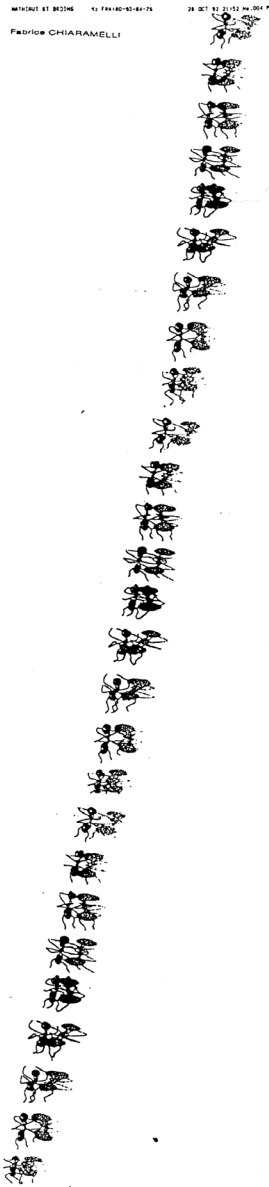 MATHIRUT ST BRIDHG N: FAX:80-93-84-76 28 OCT 92 21:52 No.004 P
Fabrice CHIARAMELLI